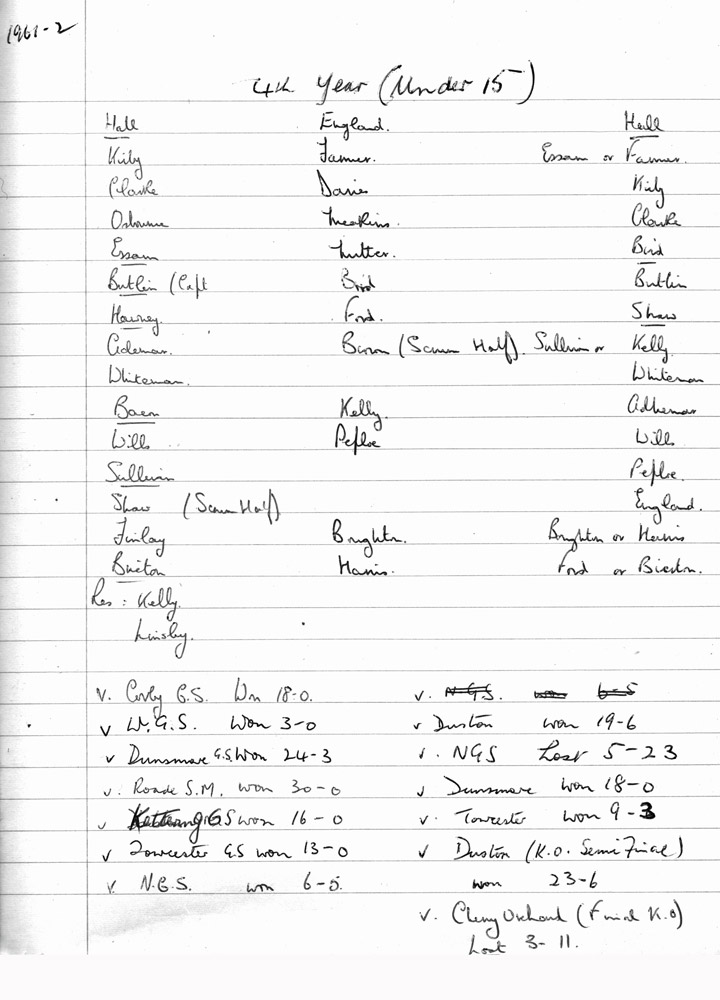 1961-2
4th Year (Under 15)
Hall England. Hall
Kirby Farmer. Essam or Farmer.
Clarke Davis Kirby
Osbourne Meakins. Clarke
Essam Nutter. Bird
Butlin (Capt Bird Butlin
Hawney. Ford. Shaw
Ademar. Baron (Scrum Half). Sullivan or Kelly
Whiteman. Whiteman
Baen Kelly. Adhemar
Wills Peploe Wills
Sullivan Peploe.
Shaw (Scrum Half) England.
Finlay Brighton. Brighton or Harris
Buxton Harris. Ford or Bierton.
Res: Kelly.
Linsby.
v. Corby G.S. Won 18-0. v. NGS. won 6-5
v W.G.S. Won 3-0 v Duston won 19-6
v Dunsmore G.S. Won 24-3 v. NGS Lost 5-23
v. Roade S.M. won 30-0 v Dunsmore won 18-0
v Kettering GS won 16-0 v. Towcester won 9-3
v Towcester GS won 13-0 v Duston (K.O. Semi Final)
v. N.G.S. won 6-5. won 23-6
v. Cherry Orchard (Final K.O)
Lost 3-11.